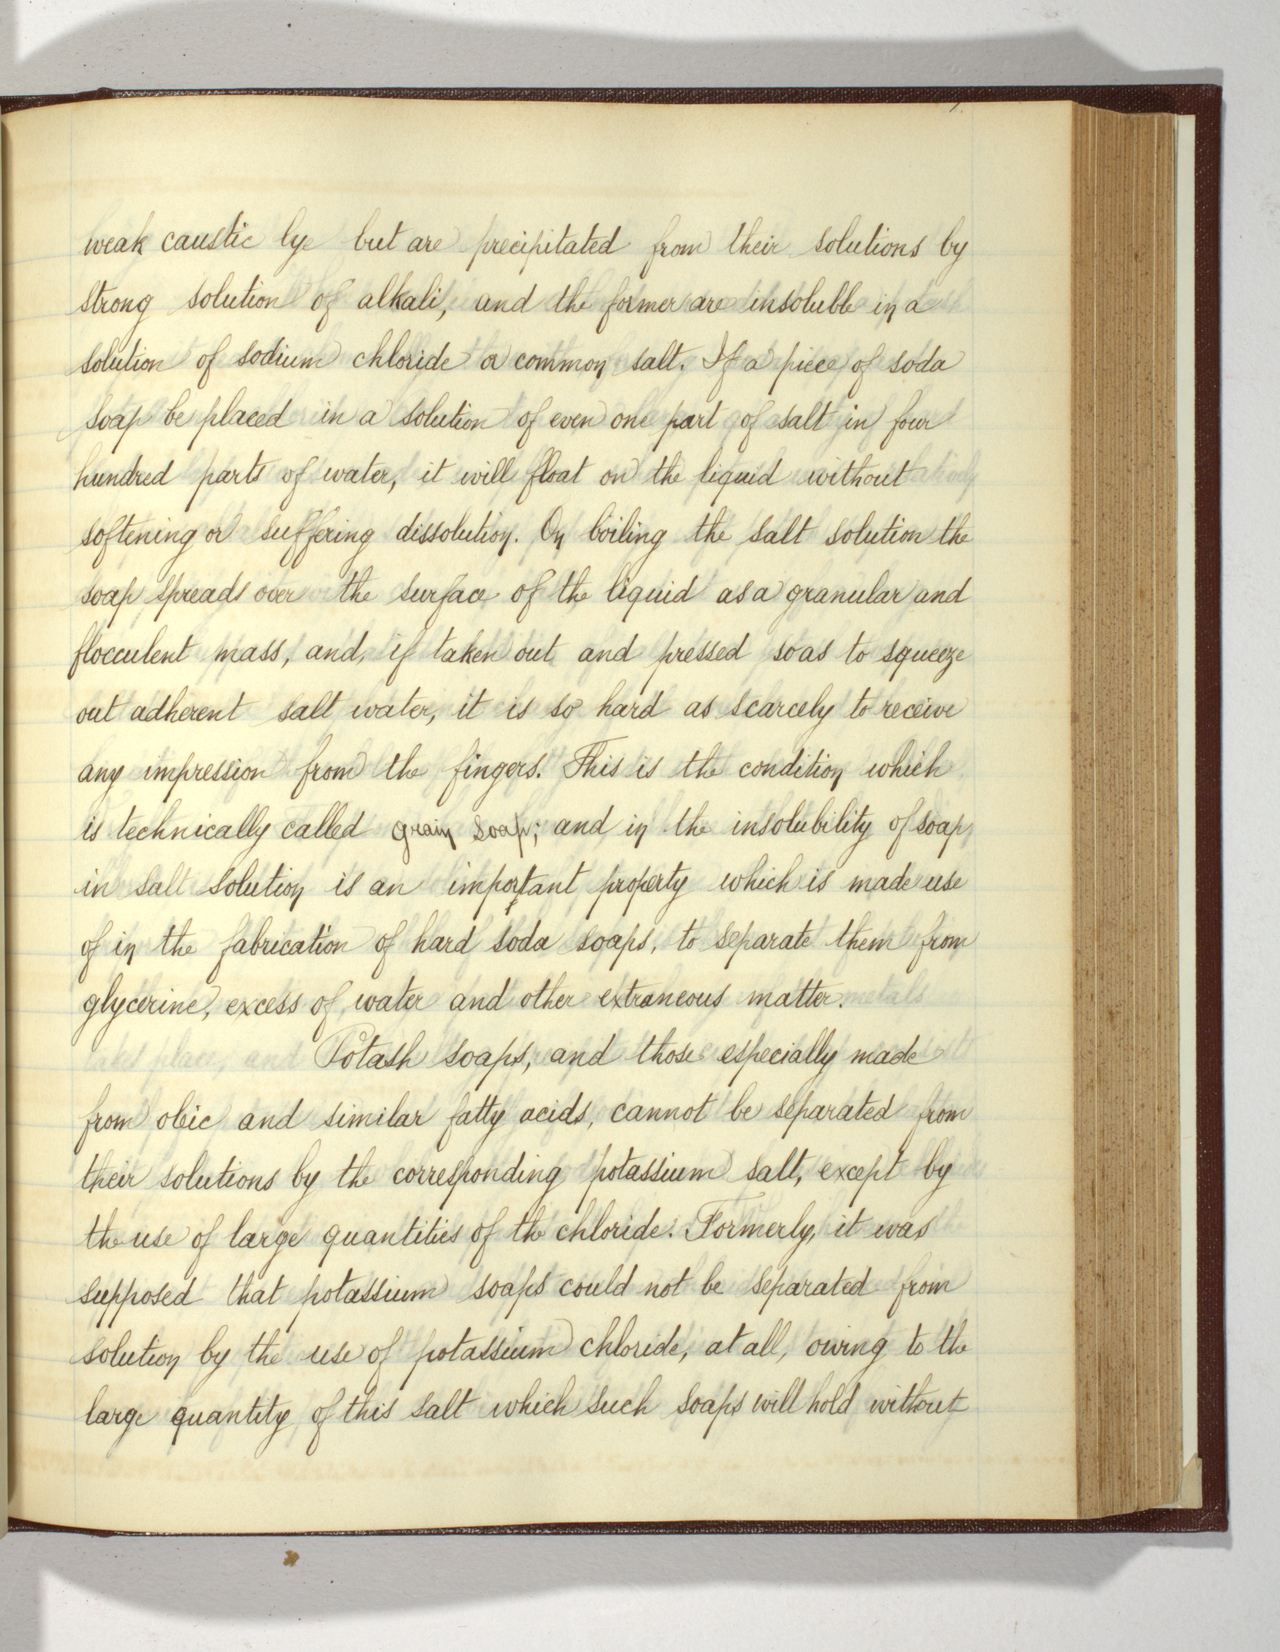 weak caustic lye but are precipitated from their solutions by
strong solution of alkali, and the former are insoluble in a
solution of sodium chloride or common salt. If a piece of soda
soap be placed in a solution of even one part of salt in four
hundred parts of water, it will float on the liquid without
softening or suffering dissolution. On boiling the salt solution the
soap spreads over the surface of the liquid as a granular and
flocculent mass, and, if taken out and pressed so as to squeeze
out adherent salt water, it is so hard as scarcely to receive
any impression from the fingers. This is the condition which
is technically called grain soap; and in the insolubility of soap
in salt solution is an important property which is made use
of in the fabrication of hard soda soaps, to separate them from
glycerine, excess of water and other extraneous matter.
Potash soaps, and those especially made
from oleic and similar fatty acids, cannot be separated from
their solutions by the corresponding potassium salt, except by
the use of large quantities of the chloride. Formerly, it was
supposed that potassium soaps could not be separated from
solution by the use of potassium chloride, at all, owing to the
large quantity of this salt which such soaps will hold without